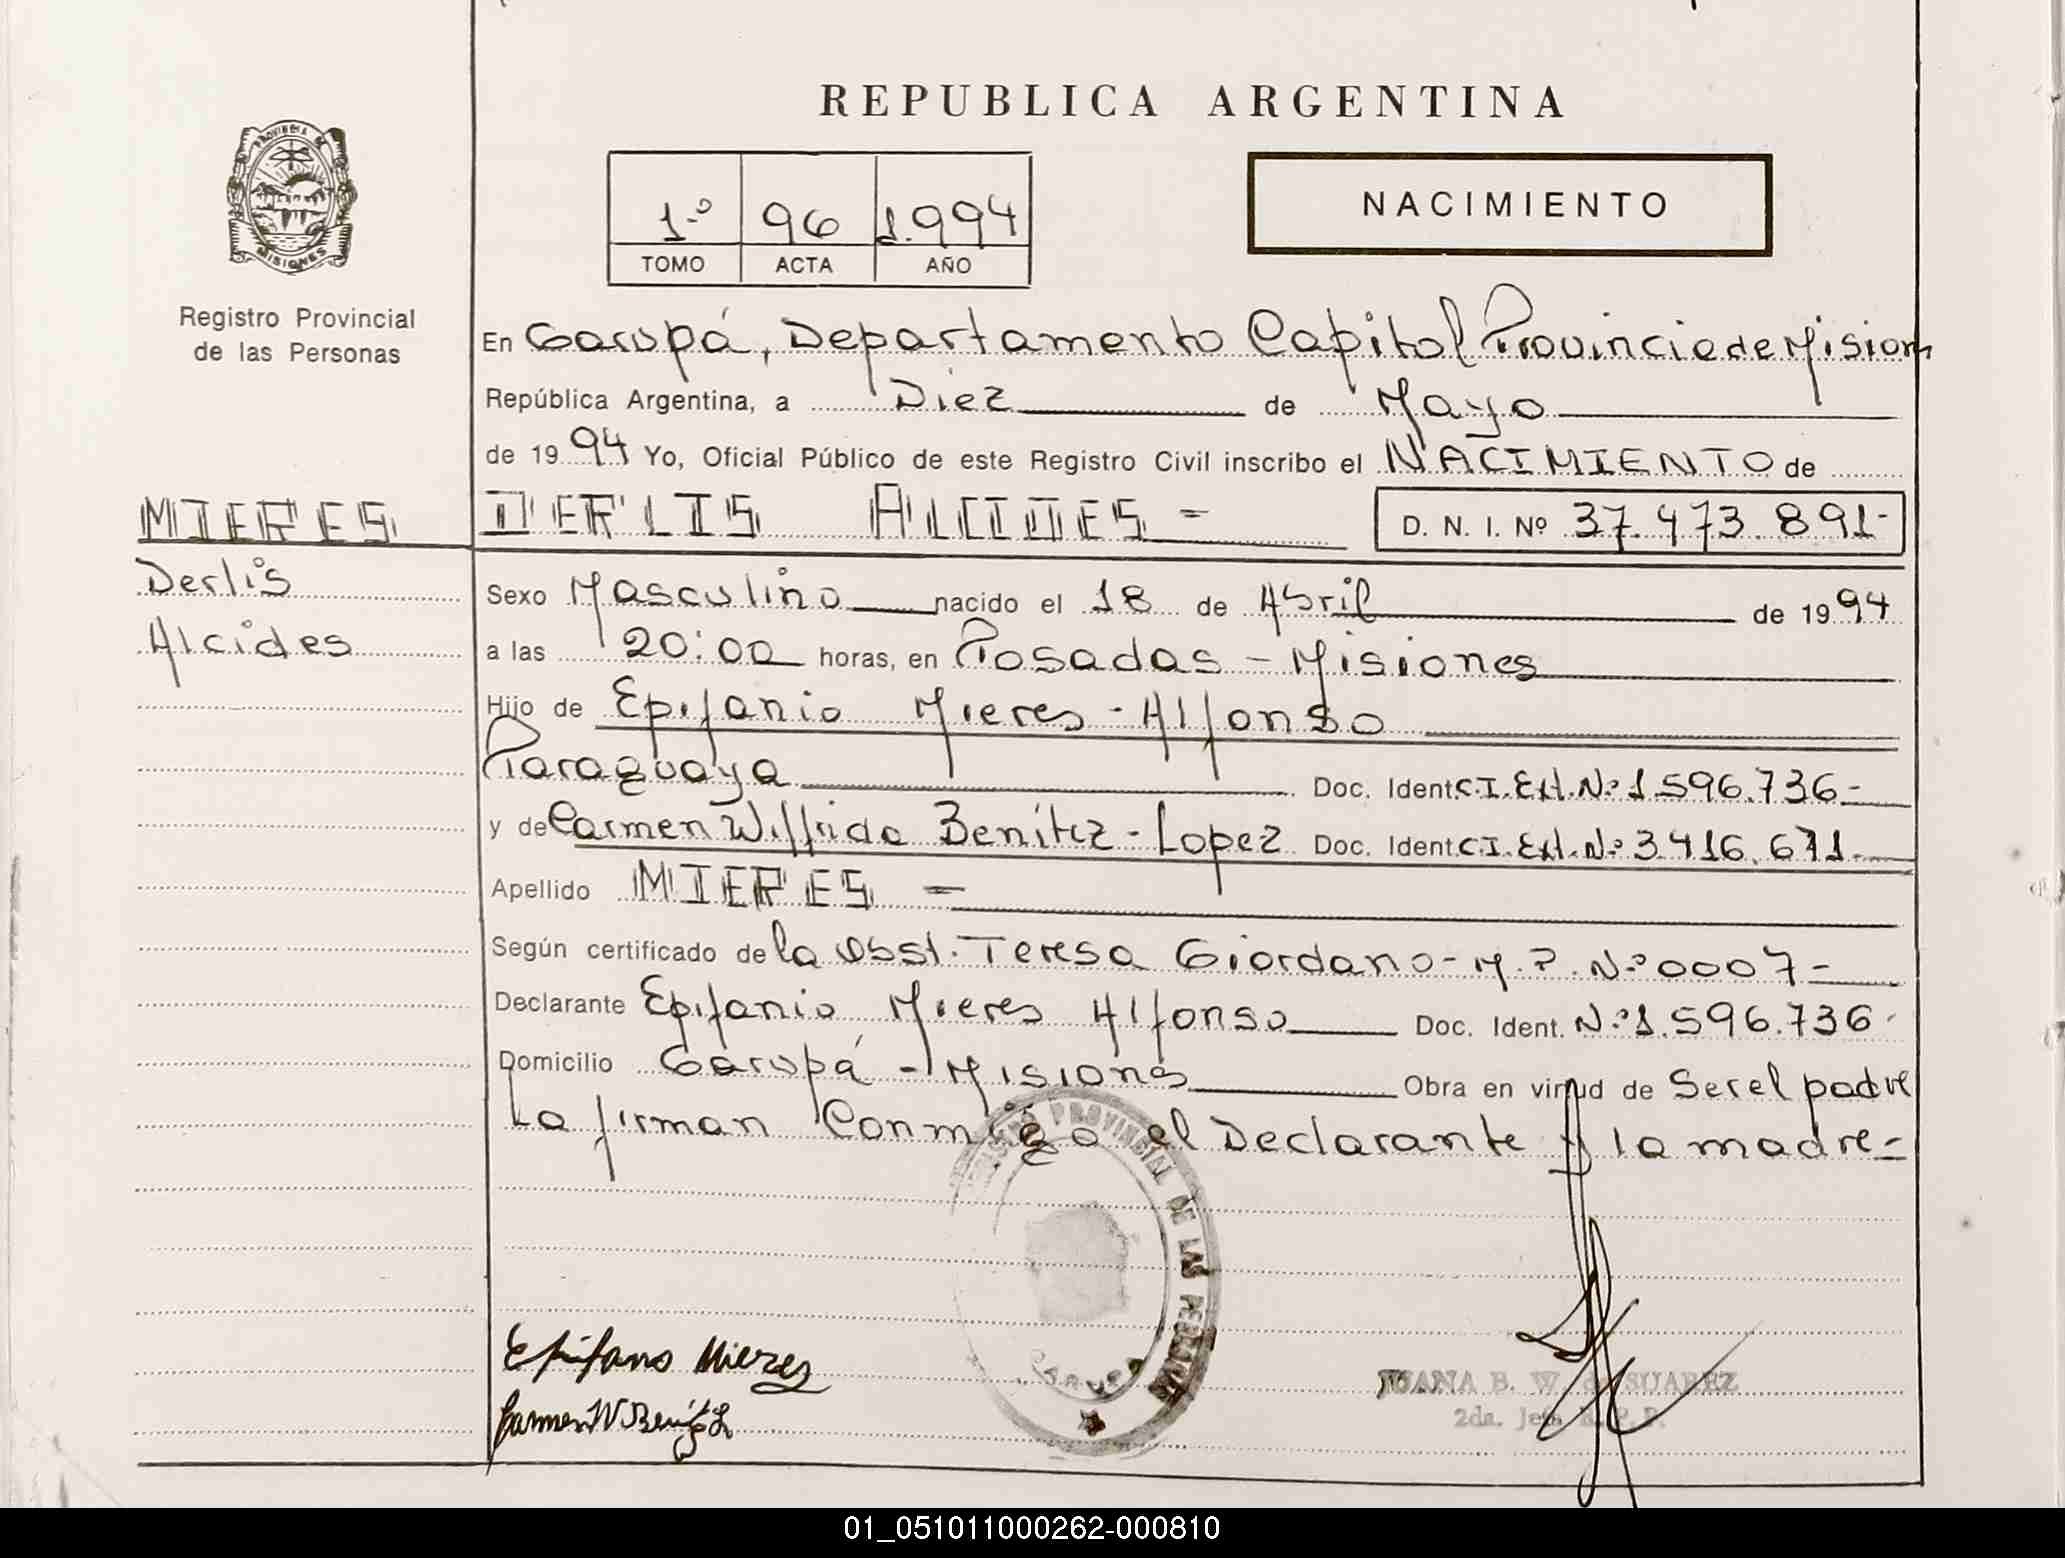 REPUBLICA ARGENTINA
PROVINCIA DE
MISIONES
Registro Provincial
de las Personas
1º 96 1.994
TOMO ACTA AÑO
NACIMIENTO
En Garupá, Departamento Capital Provincia de Mision
República Argentina, a Diez de Mayo
de 1994 Yo, Oficial Público de este Registro Civil inscribo el NACIMIENTO de
MIERES
DERLIS ALCIDES =
D. N. I. Nº 37.473.891-
Derlis
Alcides
Sexo Masculino nacido el 18 de Abril de 1994
a las 20:00 horas, en Posadas - Misiones
Hijo de Epifanio Mieres - Alfonso
Paraguaya Doc. Ident. C.I. Ext. Nº 1.596.736-
y de Carmen Wilfrida Benítez - Lopez Doc. Ident. C.I. Ext. Nº 3.416.671-
Apellido MIERES =
Según certificado de la Obst. Teresa Giordano - M.P. Nº 0007-
Declarante Epifanio Mieres Alfonso Doc. Ident. Nº 1.596.736-
Domicilio Garupá - Misiones Obra en virtud de Ser el padre
La firman Conmigo el Declarante y la madre-
PROVINCIAL DE LAS PERSONAS
GARUPA
Epifano Mieres
Carmen W Benítez L
JUANA B. W. de SUAREZ
2da. Jefe R. P. P.
01_051011000262-000810